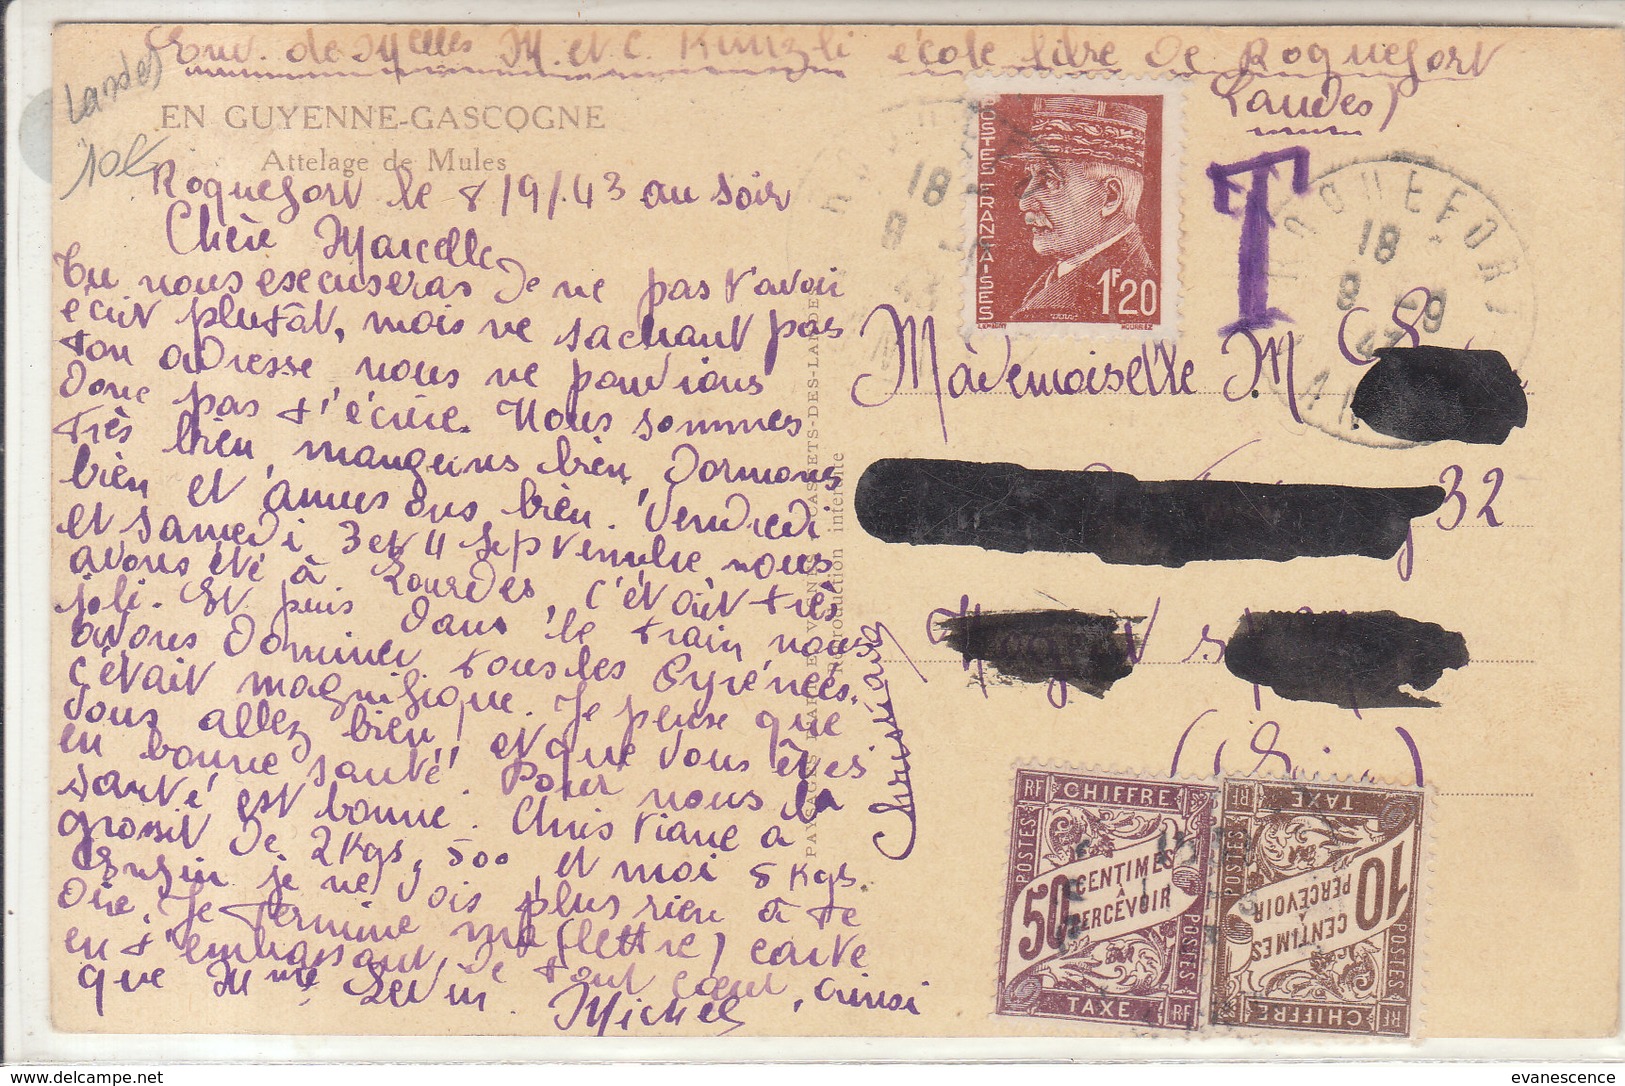 Env. de Melles M. et C. Kunzli école libre de Roquefort
Landes)
Landes
10€
EN GUYENNE-GASCOGNE
Attelage de Mules
Roquefort le 8/9/43 au soir
Chère Marcelle
Tu nous excuseras de ne pas t'avoir
écrit plutôt, mais ne sachant pas
ton adresse nous ne pouvions
donc pas t'écrire. Nous sommes
très bien, mangeons bien, dormons
bien et amusons bien. Vendredi
et samedi 3 et 4 septembre nous
avons été à Lourdes, c'était très
joli. Et puis dans le train nous
avons dominer tous les Pyrénées.
c'était magnifique. Je pense que
vous allez bien et que vous êtes
en bonne santé. Pour nous la
santé est bonne. Christiane a
grossit de 2 Kgs, 500 et moi 5 Kgs.
Enfin je ne vois plus rien à te
dire. Je termine ma (lettre) carte
en t'embrassant de tout cœur, ainsi
que Mme
Michel
Christiane
POSTES FRANÇAISES
1F20
T
ROQUEFORT
18
8 -9
43
Mademoiselle M
32
CHIFFRE
50 CENTIMES
À
PERCEVOIR
TAXE
POSTES
RF
CHIFFRE
10 CENTIMES
À
PERCEVOIR
TAXE
POSTES
RF
Reproduction interdite
evanescence